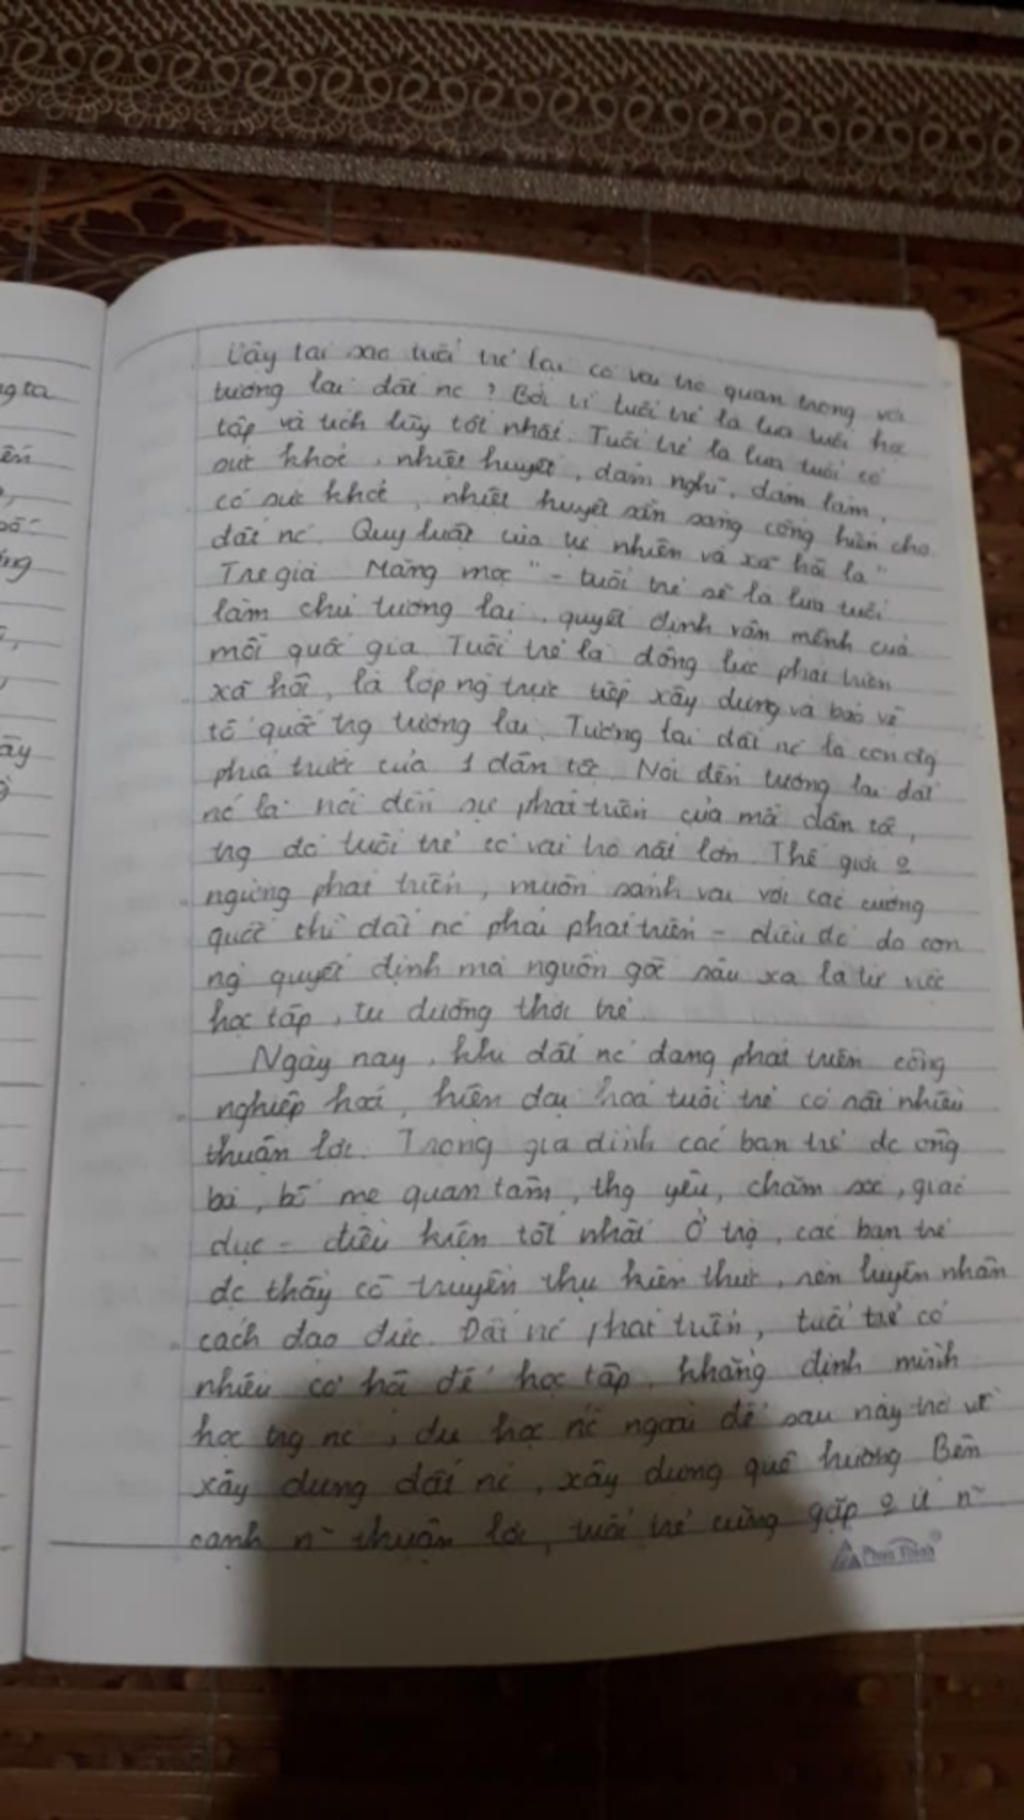 Vậy tại sao tuổi trẻ lại có vai trò quan trọng với
tương lai đất nc ? Bởi vì tuổi trẻ là lứa tuổi học
tập và tích lũy tốt nhất. Tuổi trẻ là lứa tuổi có
sức khoẻ, nhiệt huyết, dám nghĩ, dám làm,
có sức khoẻ, nhiệt huyết sẵn sàng cống hiến cho
đất nc. Quy luật của tự nhiên và xã hội là "
Tre già Măng mọc" - tuổi trẻ sẽ là lứa tuổi
làm chủ tương lai, quyết định vận mệnh của
mỗi quốc gia. Tuổi trẻ là động lực phát triển
xã hội, là lớp ng trực tiếp xây dựng và bảo vệ
tổ quốc trg tương lai. Tương lai đất nc là con đg
phía trước của 1 dân tộc. Nói đến tương lai đất
nc là nói đến sự phát triển của mỗi dân tộc,
trg đó tuổi trẻ có vai trò rất lớn. Thế giới o
ngừng phát triển, muốn sánh vai với các cường
quốc thì đất nc phải phát triển - điều đó do con
ng quyết định mà nguồn gốc sâu xa là từ việc
học tập, tu dưỡng thời trẻ.
Ngày nay, khi đất nc đang phát triển công
nghiệp hoá, hiện đại hoá tuổi trẻ có rất nhiều
thuận lợi. Trong gia đình các bạn trẻ đc ông
bà, bố mẹ quan tâm, thg yêu, chăm sóc, giáo
dục - điều kiện tốt nhất. Ở trg, các bạn trẻ
đc thầy cô truyền thụ kiến thức, rèn luyện nhân
cách đạo đức. Đất nc phát triển, tuổi trẻ có
nhiều cơ hội để học tập, khẳng định mình
học trg nc, du học nc ngoài để sau này trở về
xây dựng đất nc, xây dựng quê hương Bên
cạnh n~ thuận lợi, tuổi trẻ cũng gặp o ít n~
ng ta
ây